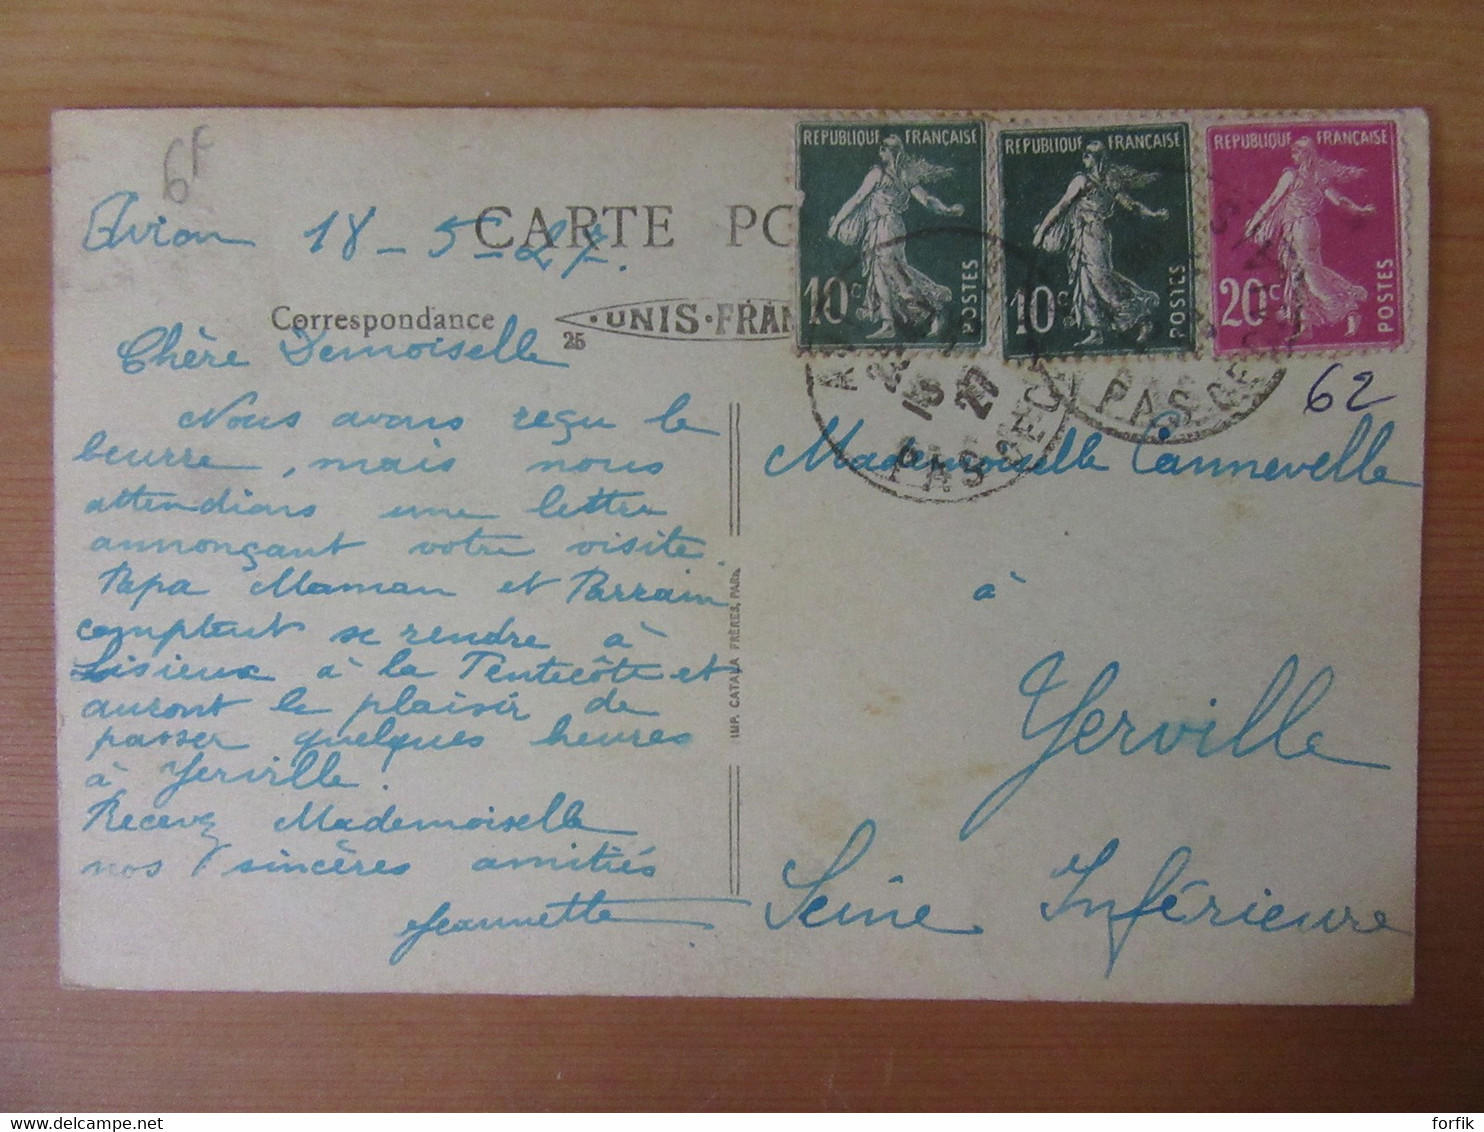 6F
Avion 18-5-27.
CARTE PO
Correspondance
UNIS-FRAN
25
REPUBLIQUE FRANÇAISE
10c
POSTES
REPUBLIQUE FRANÇAISE
10c
POSTES
REPUBLIQUE FRANÇAISE
20c
POSTES
27
PAS DE C
PAS DE
62
Chère Demoiselle
Nous avons reçu le
beurre, mais nous
attendions une lettre
annonçant votre visite
Papa Maman et Parrain
comptent se rendre à
Lisieux à la Pentecôte et
auront le plaisir de
passer quelques heures
à Yerville.
Recevez Mademoiselle
nos sincères amitiés
Jeannette
IMP. CATALA FRÈRES, PARIS
Mademoiselle Cannevelle
à
Yerville
Seine Inférieure
forfik